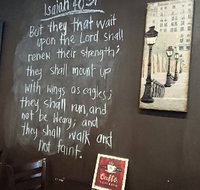 Isaiah 40:31
But they that wait
upon the Lord shall
renew their strength;
they shall mount up
with wings as eagles;
they shall run, and
not be weary; and
they shall walk and
not faint.
Caffè